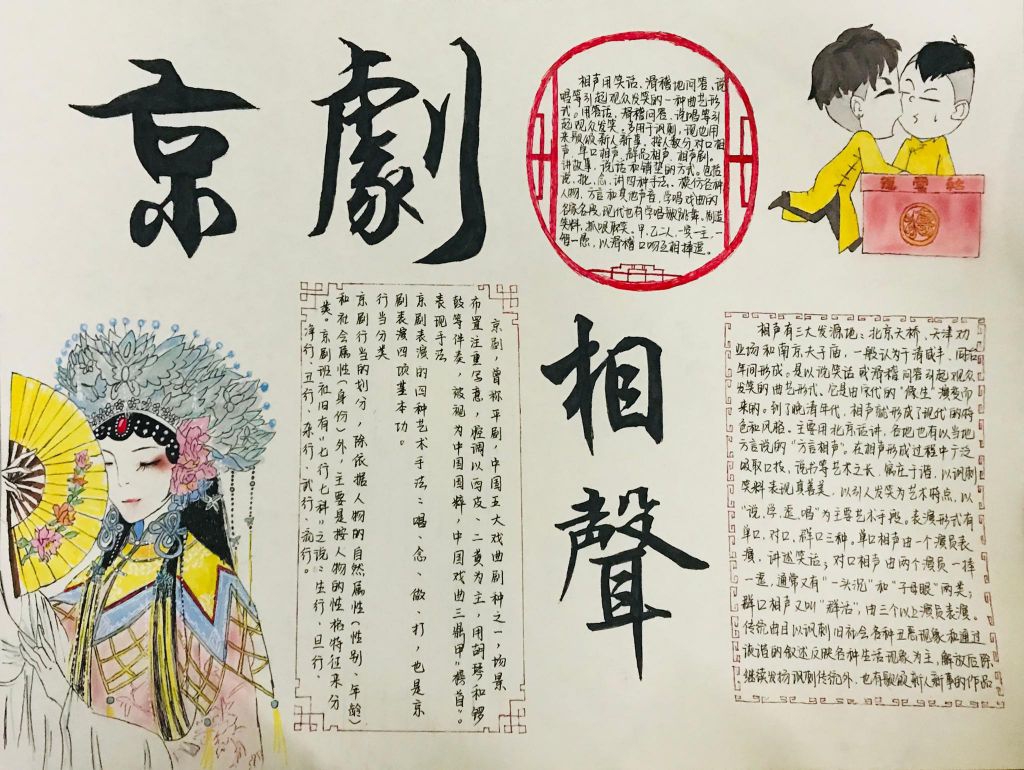 京劇
相声用笑话、滑稽地问答、说
唱等引起观众发笑的一种曲艺形
式。用笑话、滑稽问答、说唱等引
起观众发笑。多用于讽刺,现也用
来歌颂新人新事。按人数分对口相
声,单口相声,群活相声,相声剧。
讲故事,说话和铺垫的方式。包括
说,批,念,讲四种手法。模仿各种
人物、方言和其他声音,学唱戏曲的
名家名段,现代也有学唱歌跳舞。制造
笑料,抓哏取笑。甲、乙二人,一宾一主,一
智一愚,以滑稽口吻互相捧逗。
京剧,曾称平剧,中国五大戏曲剧种之一,场景
布置注重写意,腔调以西皮、二黄为主,用胡琴和锣
鼓等伴奏,被视为中国国粹,中国戏曲三鼎甲"榜首"。
表现手法
京剧表演的四种艺术手法:唱、念、做、打,也是京
剧表演四项基本功。
行当分类
京剧行当的划分,除依据人物的自然属性(性别、年龄)
和社会属性(身份)外,主要是按人物的性格特征来分
类。京剧班社旧有"七行七科"之说:生行、旦行、
净行、丑行、杂行、武行、流行。
相聲
相声有三大发源地:北京天桥、天津劝
业场和南京夫子庙,一般认为于清咸丰、同治
年间形成。是以说笑话或滑稽问答引起观众
发笑的曲艺形式。它是由宋代的"像生"演变而
来的。到了晚清年代,相声就形成了现代的特
色和风格。主要用北京话讲,各地也有以当地
方言说的"方言相声"。在相声形成过程中广泛
吸取口技、说书等艺术之长,寓庄于谐,以讽刺
笑料表现真善美,以引人发笑为艺术特点,以
"说、学、逗、唱"为主要艺术手段。表演形式有
单口、对口、群口三种。单口相声由一个演员表
演,讲述笑话;对口相声由两个演员一捧
一逗,通常又有"一头沉"和"子母哏"两类;
群口相声又叫"群活",由三个以上演员表演。
传统曲目以讽刺旧社会各种丑恶现象和通过
诙谐的叙述反映各种生活现象为主,解放后除
继续发扬讽刺传统外,也有歌颂新人新事的作品